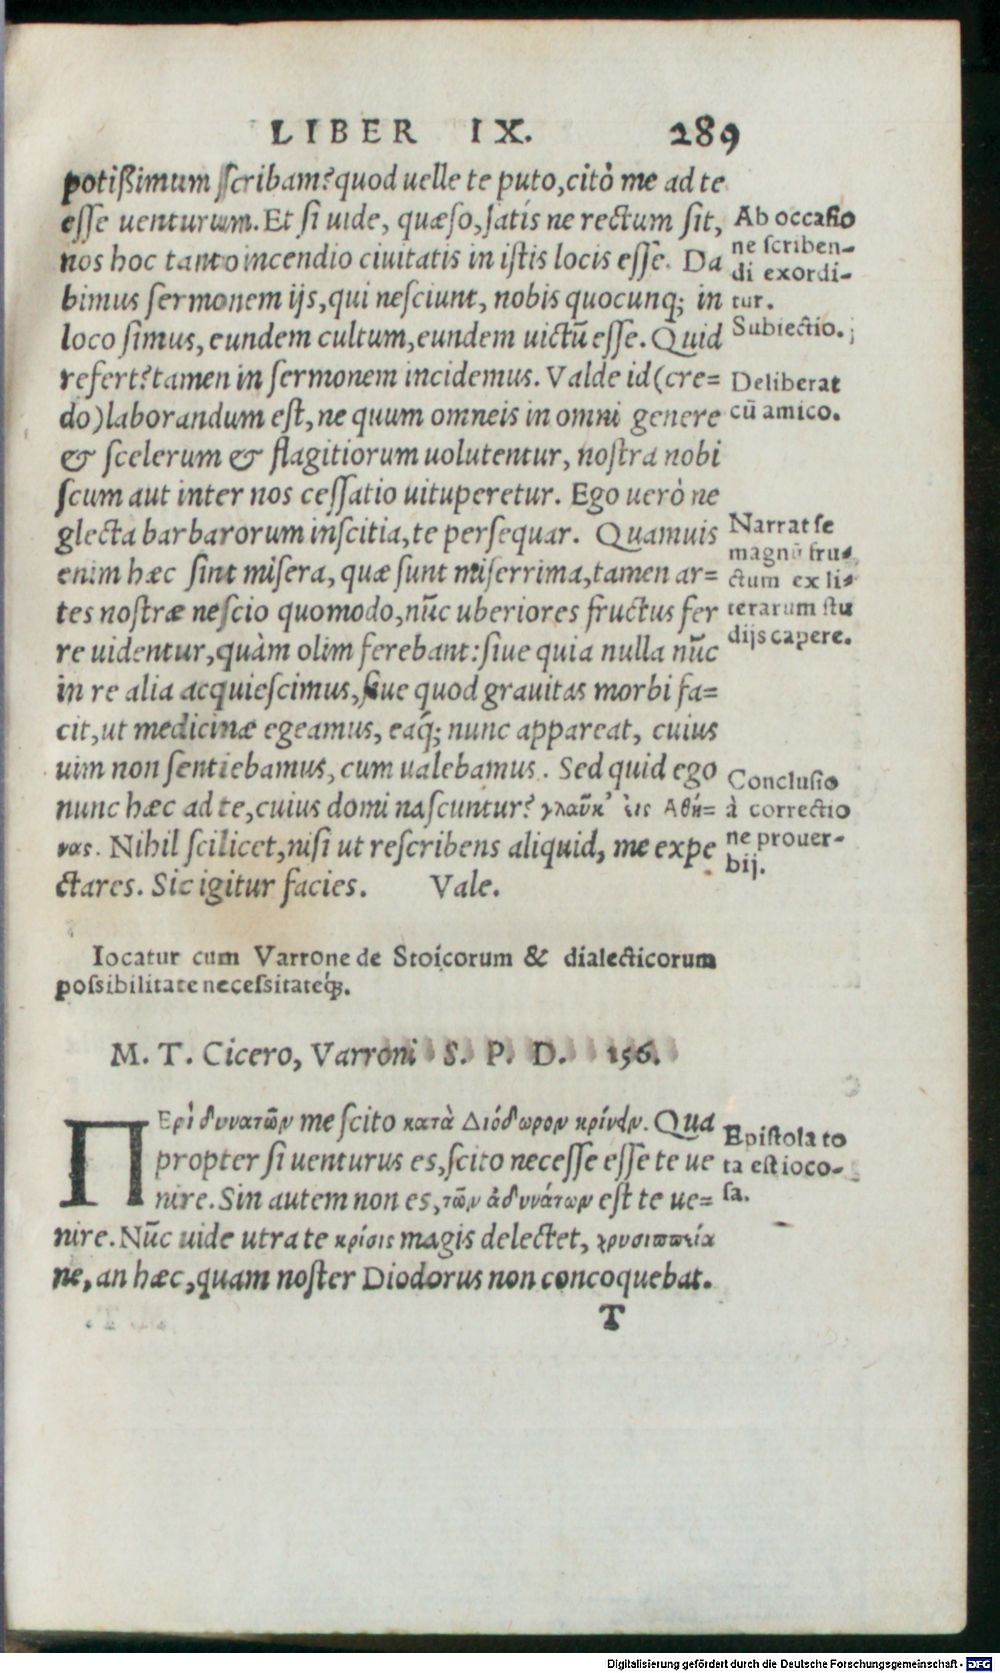 LIBER IX. 289
potißimum scribam? quod uelle te puto, citò me ad te
esse uenturum. Et si uide, quæso, satís ne rectum sit,
nos hoc tanto incendio ciuitatis in istis locis esse. Da
bimus sermonem ijs, qui nesciunt, nobis quocunq; in
loco simus, eundem cultum, eundem uictū esse. Quid
refert? tamen in sermonem incidemus. Valde id (cre=
do) laborandum est, ne quum omneis in omni genere
& scelerum & flagitiorum uolutentur, nostra nobi
scum aut inter nos cessatio uituperetur. Ego uerò ne
glecta barbarorum inscitia, te persequar. Quamuis
enim hæc sint misera, quæ sunt miserrima, tamen ar=
tes nostræ nescio quomodo, nūc uberiores fructus fer
re uidentur, quàm olim ferebant: siue quia nulla nūc
in re alia acquiescimus, siue quod grauitas morbi fa=
cit, ut medicinæ egeamus, eaq́; nunc appareat, cuius
uim non sentiebamus, cum ualebamus. Sed quid ego
nunc hæc ad te, cuius domi nascuntur? γλαῦκ' εἰς Αθή=
νας. Nihil scilicet, nisi ut rescribens aliquid, me expe
ctares. Sic igitur facies. Vale.
Ab occasio
ne scriben-
di exordi-
tur.
Subiectio.
Deliberat
cū amico.
Narrat se
magnū fru-
ctum ex li-
terarum stu
dijs capere.
Conclusio
à correctio
ne prouer-
bij.
Iocatur cum Varrone de Stoicorum & dialecticorum
possibilitate necessitateq́;.
M. T. Cicero, Varroni S. P. D. 156.
ΠΕρὶ δυνατῶν me scito κατὰ Διόδωρον κρίνειν. Qua
propter si uenturus es, scito necesse esse te ue
nire. Sin autem non es, τῶν ἀδυνάτων est te ue=
nire. Nūc uide utra te κρίσις magis delectet, χρυσιππεία
ne, an hæc, quam noster Diodorus non concoquebat.
Epistola to
ta est ioco-
sa.
T
Digitalisierung gefördert durch die Deutsche Forschungsgemeinschaft - DFG